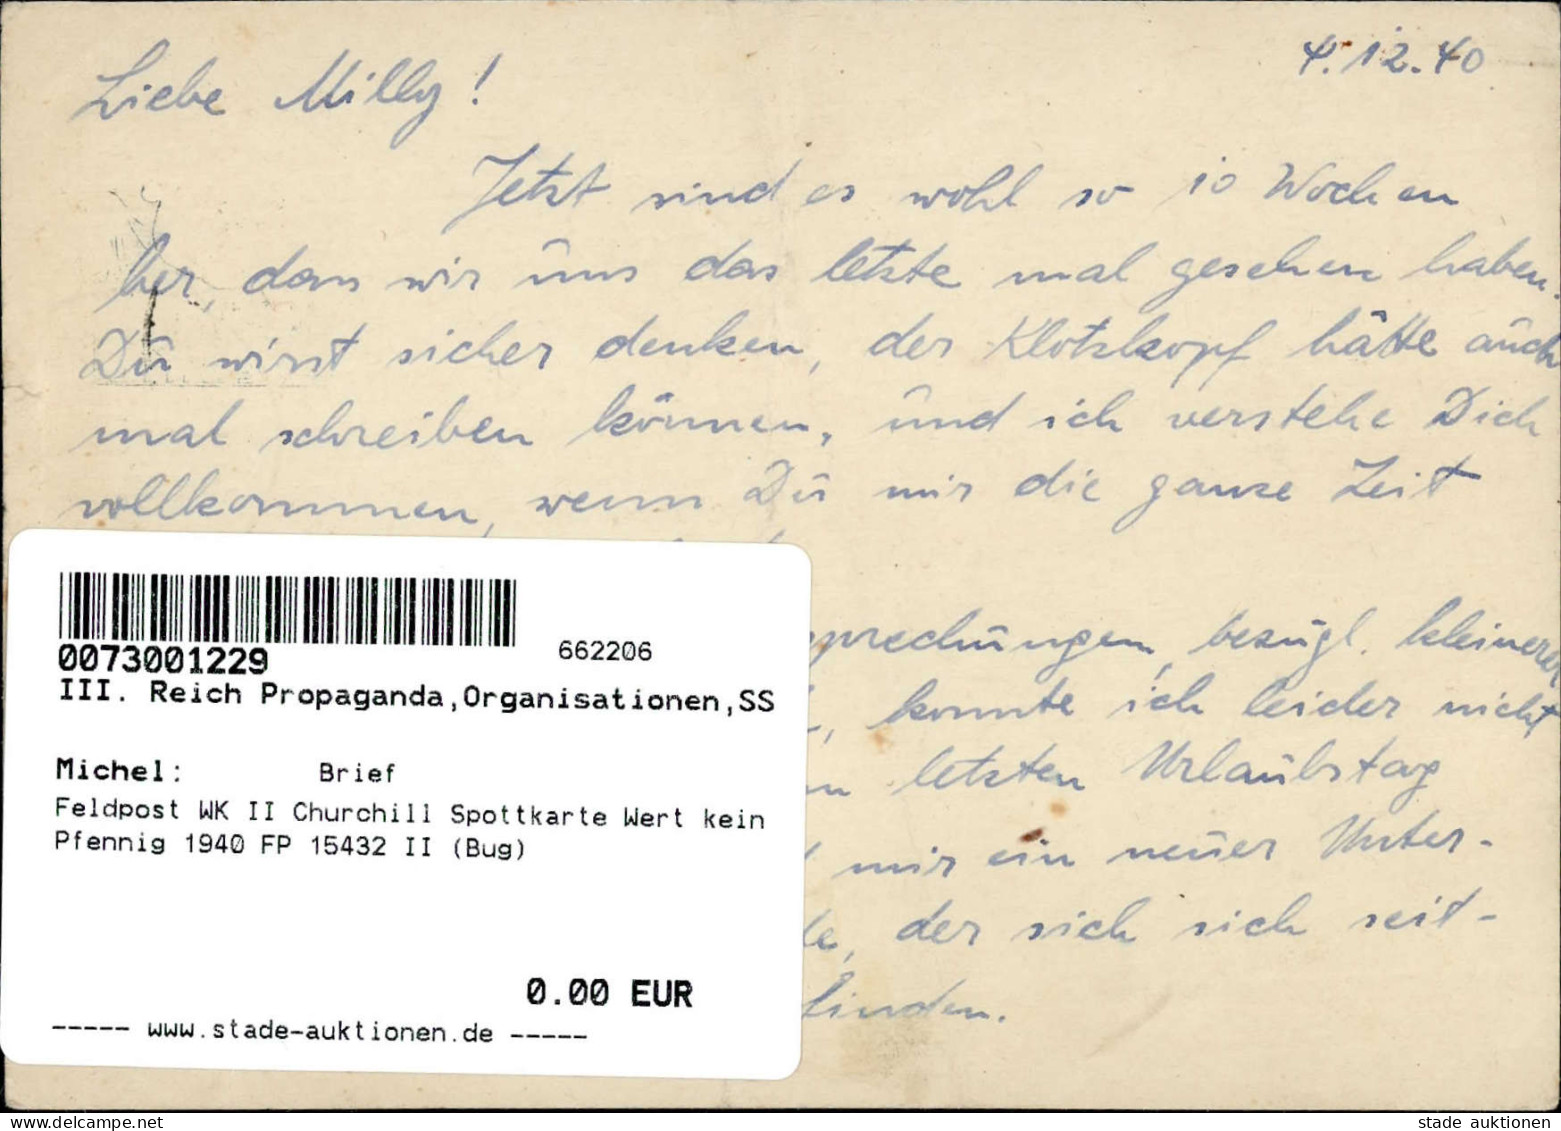 4.12.40
Liebe Milly!
Jetzt sind es wohl so 10 Wochen
her, dass wir uns das letzte mal gesehen haben.
Du wirst sicher denken, der Klotzkopf hätte auch
mal schreiben können, und ich verstehe Dich
vollkommen, wenn Du mir die ganze Zeit
sprechungen, bezügl. kleinerer
, konnte ich leider nicht
letzten Urlaubstag
mir ein neuer Unter-
, der sich sich seit-
finden.
0073001229 662206
III. Reich Propaganda,Organisationen,SS
Michel: Brief
Feldpost WK II Churchill Spottkarte Wert kein
Pfennig 1940 FP 15432 II (Bug)
0.00 EUR
----- www.stade-auktionen.de -----
stade auktionen